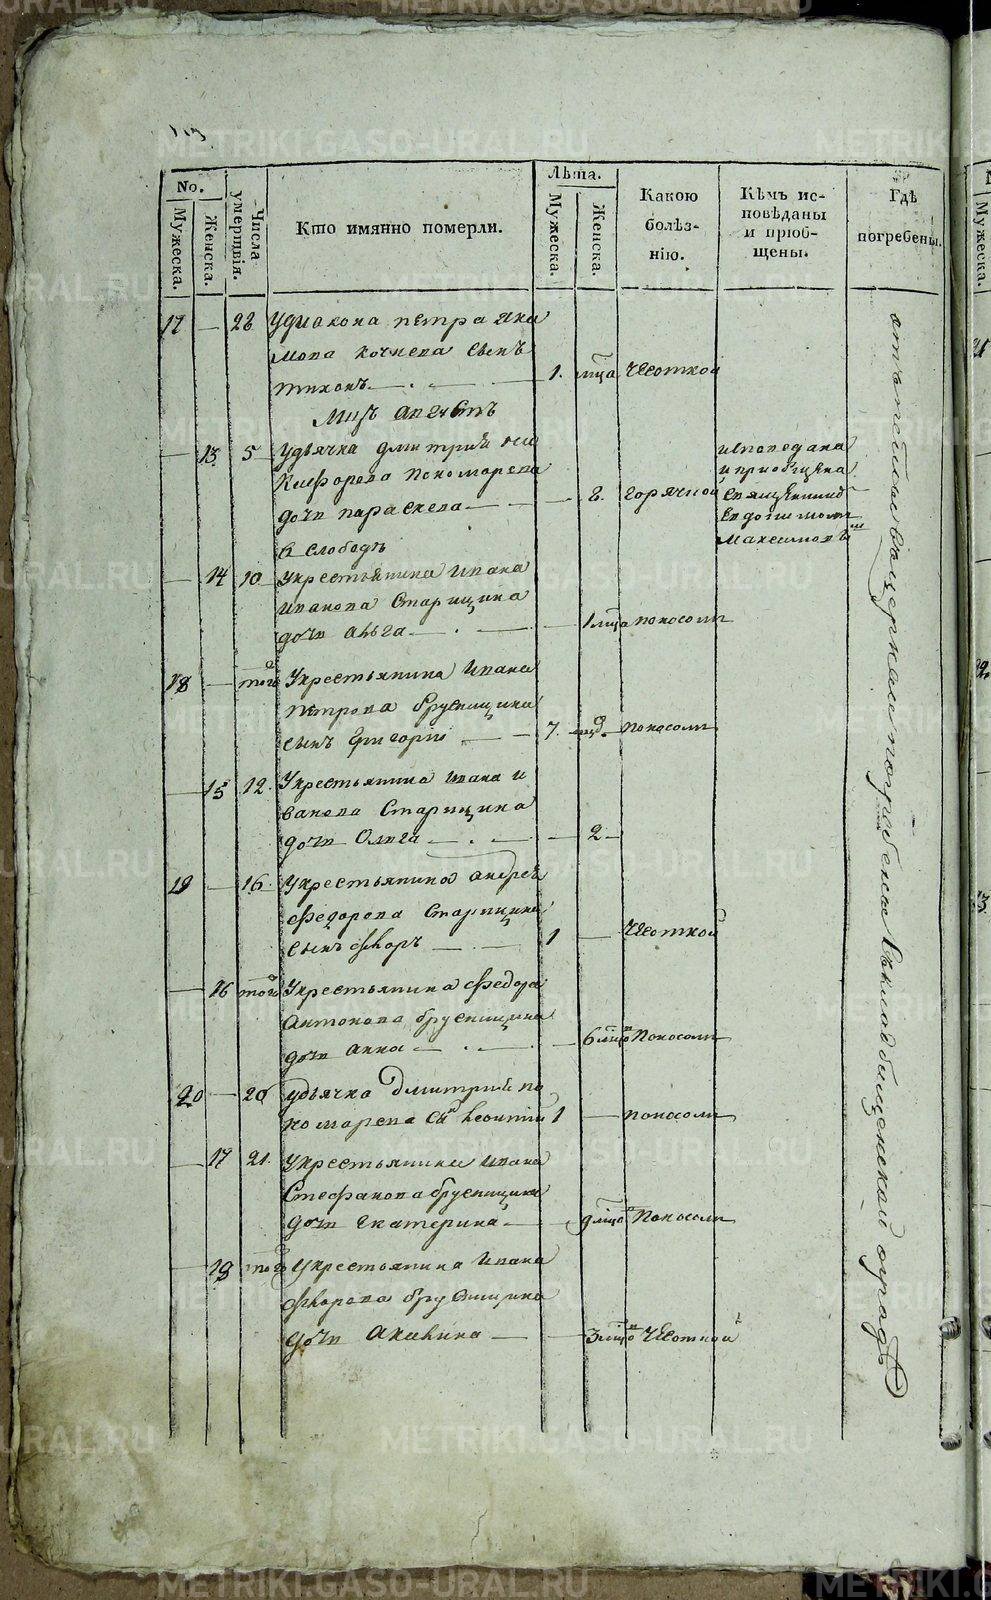 No.
Мужеска.
Женска.
Числа умерщвія.
Кто имянно померли.
Лѣта.
Мужеска.
Женска.
Какою болѣз-нію.
Кѣмъ ис-повѣданы и пріоб-щены.
Гдѣ погребены.
17 — 28 Удиакона петра Яки
мова кочнева сынъ
тихонъ — 1. мца Чесоткой
Мцъ Августъ
— 13 5 Удьячка дмитрий ни
кифорова пономарева
дочь параскева — 2. горячкой
исповедана
и приобщена
священник
Евдокимом
Максимовым
в слободѣ
— 14 10 Укрестьянина ивана
иванова Старицина
дочь — 1 мца поносомъ
18 — того Укрестьянина ивана
петрова брусницина
сынъ григорій — 7. мцо. поносомъ
— 15 12. Укрестьянина ивана и
ванова Старицина
дочь Олига — 2 —
19 — 16. Укрестьянина андрей
федорова Старицина
сынъ флоръ — 1 — Чесоткой
— 16 того Укрестьянина федора
антонова брусницина
дочь анна — 6 мцо поносомъ
20 — 20 удьячка Дмитрий по
номарева сынъ леонтий 1 — поносомъ
— 17 21. Укрестьянина ивана
Стефанова брусницина
дочь екатерина — 9 мцо поносомъ
— 18 того Укрестьянина ивана
флорова брусницина
дочь акилина — 3 мцо Чесоткой
отпетыи в церкви и погребены Въкладбищенской оградѣ
METRIKI.GASO-URAL.RU